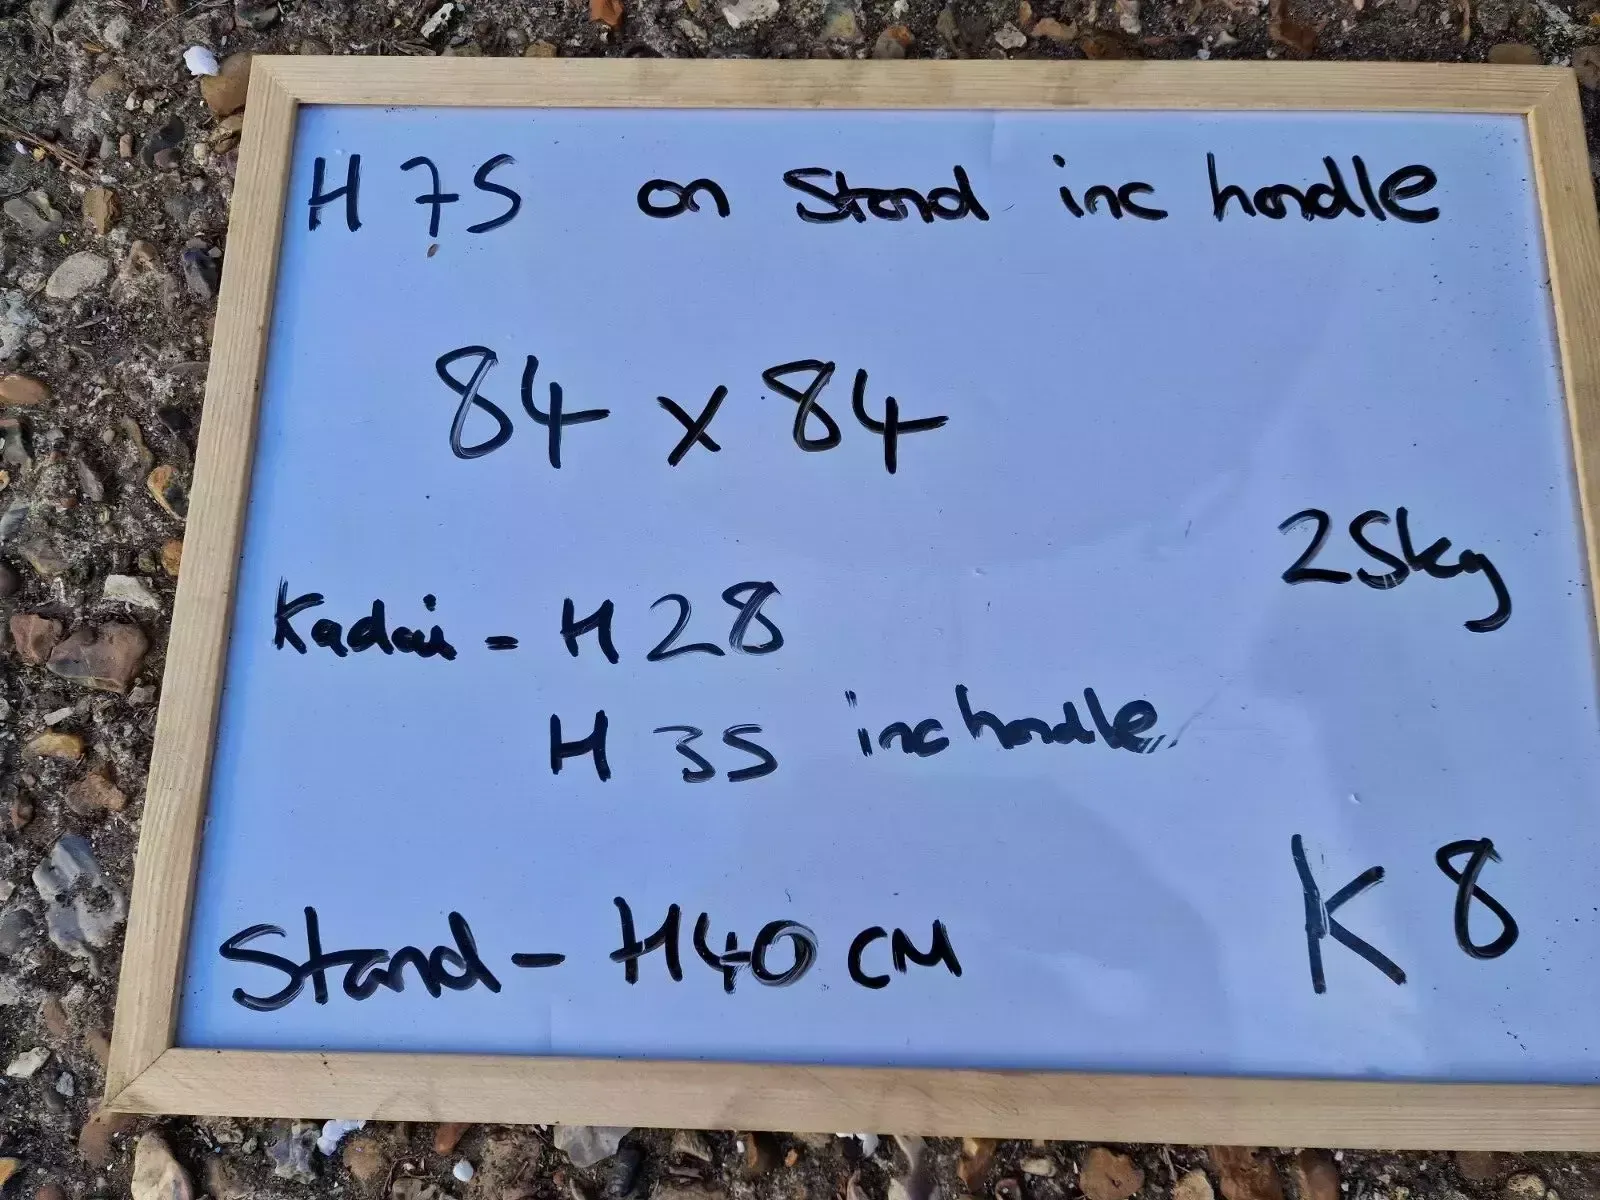 H 75 on Stand inc handle
84 x 84
25kg
Kadai = H 28
H 35 inc handle
Stand - H40 CM
K 8